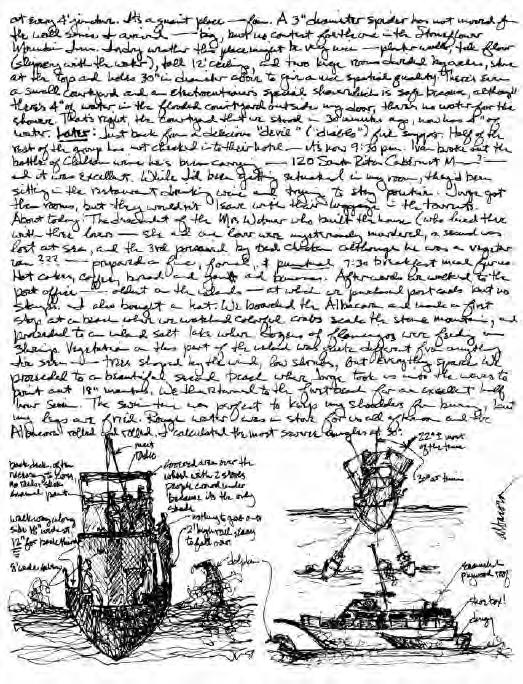 at every 4' juncture. It's a quaint place — fun. A 3" diameter spider has not moved off
the wall since I arrived — big, but no contest for the one in the
Inn. Andry weather this place might be very nice — plaster walls, tile floor
(slippery with the water), tall 12' ceiling, and two large rooms divided by arches,
at the top and holes 30" in diameter above to give a nice spatial quality. There's even
a small courtyard and an electrocutioner's special shower which is safe because, although
there's 4" of water in the flooded courtyard outside my door, there's no water for the
shower. That's right, the courtyard that we stood in 30 minutes ago, now has 4" of
water. Later: Just back from a delicious "devil" ("diablo") fish supper. Half of the
rest of the group has not checked into their hotel — it's now 9:30 pm. Ivan broke out the
bottle of Chilean wine he's been carrying — 120 Santa Rita Cabernet
and it was excellent. While I'd been getting situated in my room, they'd been
sitting in the restaurant drinking wine and trying to stay positive. Jorge got
them rooms, but they wouldn't leave with their luggage in the torrents.
About today: The descendent of the Mrs Witmer who built the house (who lived there
with three lovers — she and one lover were mysteriously murdered, a second was
lost at sea, and the 3rd poisoned by bad chicken although he was a vegetar
ian ??? — prepared a fine, formal, & punctual 7:30 breakfast meal for us.
Hot cakes, coffee, bread and and bananas. Afterwards we walked to the
post office — on the islands — at which we purchased post cards but no
stamps. I also bought a hat. We boarded the Albacora and made a first
stop at a beach where we watched colorful crabs scale the stone mountains, and
proceeded to an inland salt lake where dozens of flamingos were feeding on
shrimp. Vegetation on this part of the island was quite different from anything
I've seen — trees shaped by the wind, low shrubs, but everything sparse. We
proceeded to a beautiful second beach where Jorge took us into the waves to
point out 18" mantas. We then returned to the first beach for an excellent half
hour swim. The swim was perfect to keep my shoulders from burning, but
my legs are fried. Rough water was in store for us and the
Albacora rolled and rolled. I calculated the most severe angles at 30°.
mast
radio
covered area over the
wheel with 2 stores
people crowd under
because it's the only
shade
nothing to grab over
2' high rail, easy
to fall over
dolphin
walkway along
side 18" wide
12" for
22° I went
of the time
30° at times
Albacora
plywood roof
shoe box!
dingy